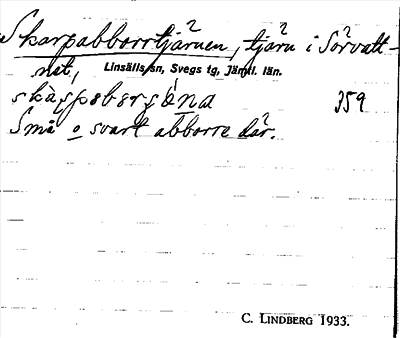 Skarpabborrtjärnen, tjärn i Sörvatt-
net, Linsälls sn, Svegs tg, Jämtl. län.
359
Små o svart abborre där.
C. LINDBERG 1933.